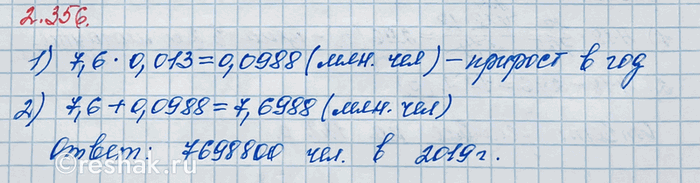 2.356.
1) 7,6 · 0,013 = 0,0988 (млн. чел) – прирост в год
2) 7,6 + 0,0988 = 7,6988 (млн. чел)
Ответ: 7698800 чел. в 2019 г.
©reshak.ru